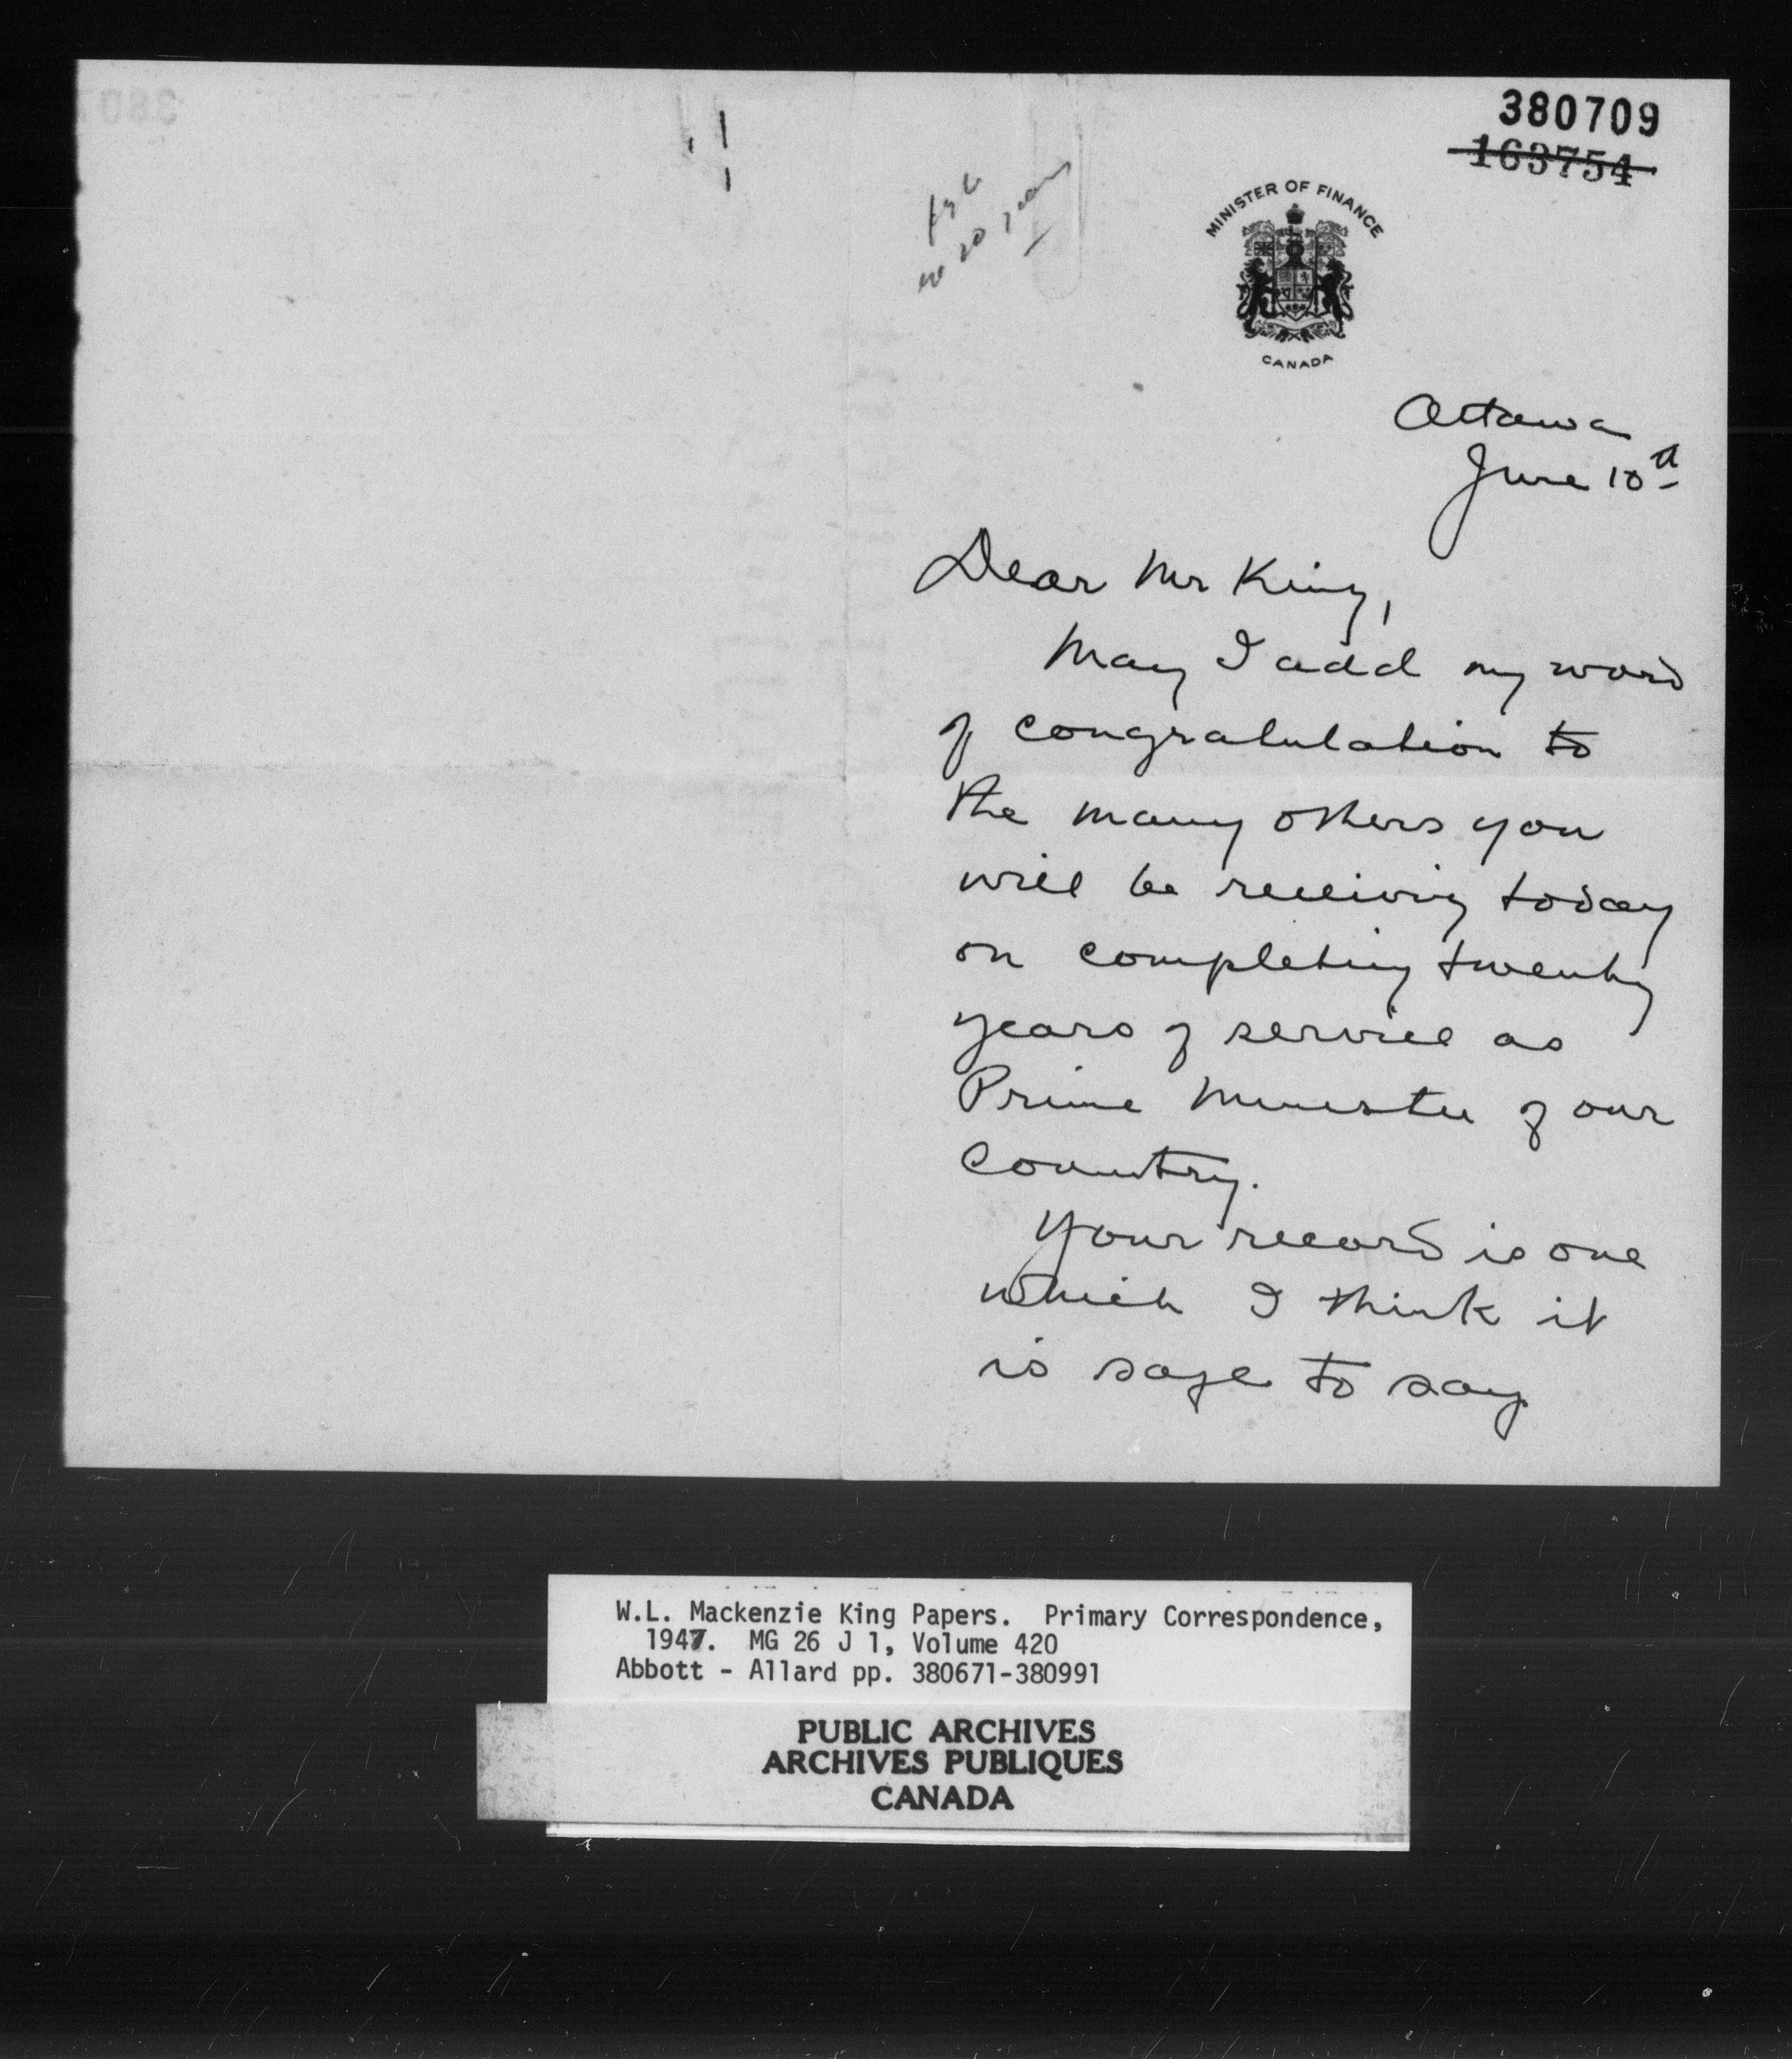 380709
163754
20 years
MINISTER OF FINANCE
CANADA
Ottawa
June 10th
Dear Mr King,
May I add my word
of congratulation to
the many others you
will be receiving today
on completing twenty
years of service as
Prime Minister of our
Country.
Your record is one
which I think it
is safe to say
W.L. Mackenzie King Papers. Primary Correspondence,
1947. MG 26 J 1, Volume 420
Abbott - Allard pp. 380671-380991
PUBLIC ARCHIVES
ARCHIVES PUBLIQUES
CANADA